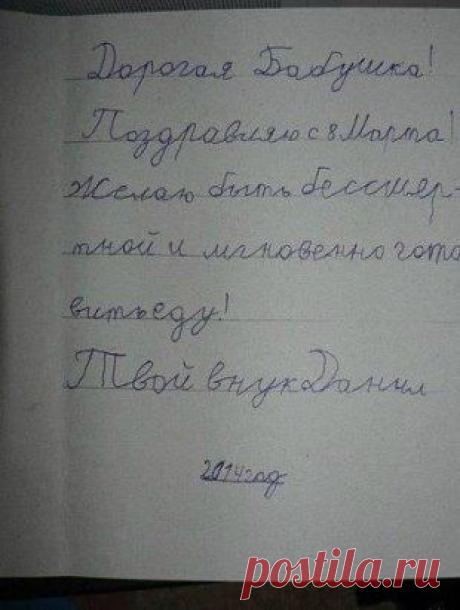 Дорогая Бабушка!
Поздравляю с 8 Марта!
Желаю быть бессмер-
тной и мгновенно гото
вить еду!
Твой внук Данил
2014 год
postila.ru